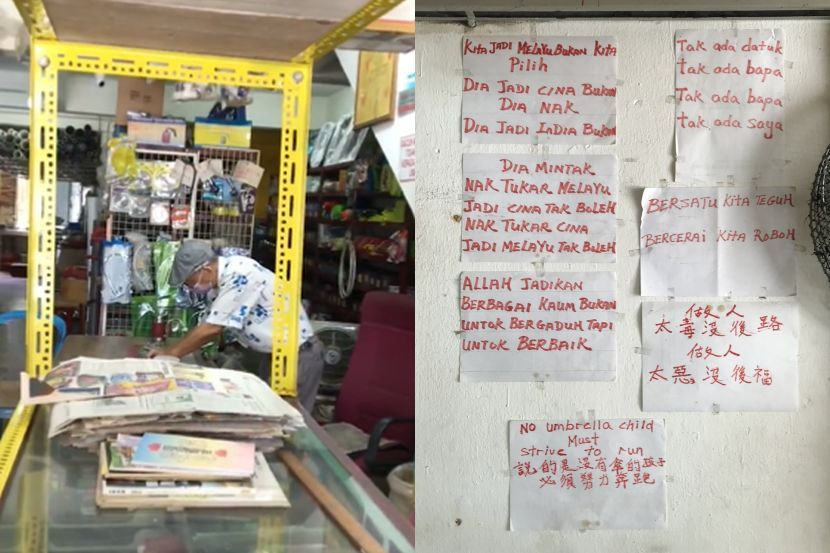 KITA JADI MELAYU BUKAN KITA
Pilih
DIA JADI CINA BUKAN
DIA NAK
DIA JADI INDIA BUKAN
DIA MINTAK
NAK TUKAR MELAYU
JADI CINA TAK BOLEH
NAK TUKAR CINA
JADI MELAYU TAK BOLEH
ALLAH JADIKAN
BERBAGAI KAUM BUKAN
UNTUK BERGADUH TAPI
UNTUK BERBAIK
Tak ada datuk
tak ada bapa
Tak ada bapa
tak ada saya
BERSATU KITA TEGUH
BERCERAI KITA ROBOH
做人
太毒沒後路
做人
太惡沒後福
NO umbrella child
Must
strive to run
說的是沒有傘的孩子
必須努力奔跑